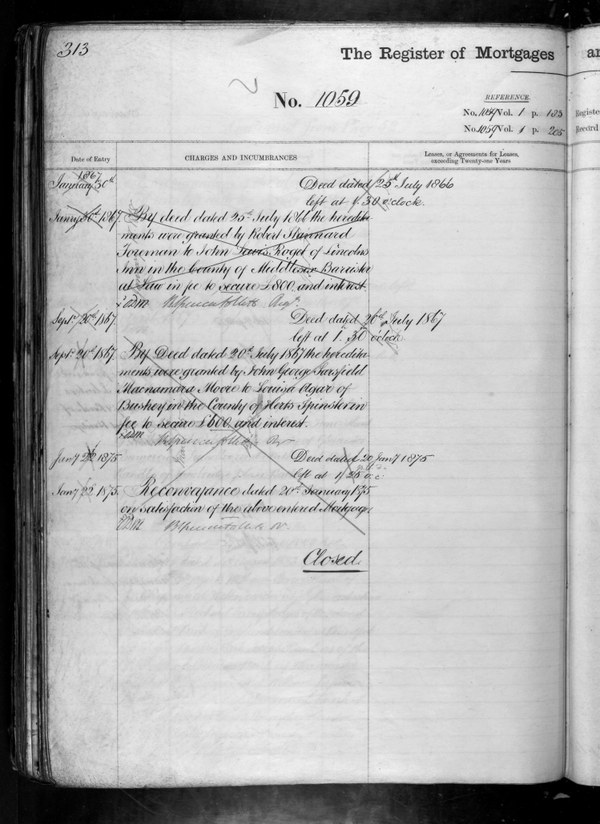 313
The Register of Mortgages
an
No. 1059
REFERENCE.
No. 1059 Vol. 1 p. 133
No. 1059 Vol. 1 p. 205
Registe
Record
Date of Entry
CHARGES AND INCUMBRANCES
Leases, or Agreements for Leases,
exceeding Twenty-one Years
1867
January 30th
Deed dated 25th July 1866
left at 1.30 o'clock.
1867 By deed dated 25th July 1866 the heredita
ments were granted by Robert
Foreman to John Rogel of Lincolns
Inn in the County of Middlesex Barrister
at Law in fee to secure £800 and interest.
Septr 20th 1867
Deed dated 20th July 1867
left at 1.30 o'clock
Septr 20th 1867 By Deed dated 20th July 1867 the heredita
ments were granted by John George Sarsfield
Macnamara Moore to Louisa Algar of
Bushey in the County of Herts Spinster in
fee to secure £600 and interest.
Jany 22 1875
Deed dated 20 Jany 1875
left at 1/25 o.c.
Jany 22 1875. Reconveyance dated 20th January 1875
on satisfaction of the above entered Mortgage.
Closed